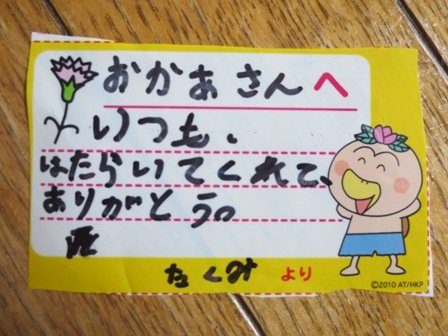 おかあさんへ
いつも、
はたらいてくれて、
ありがとう。
たくみより
©2010 AT/HKP